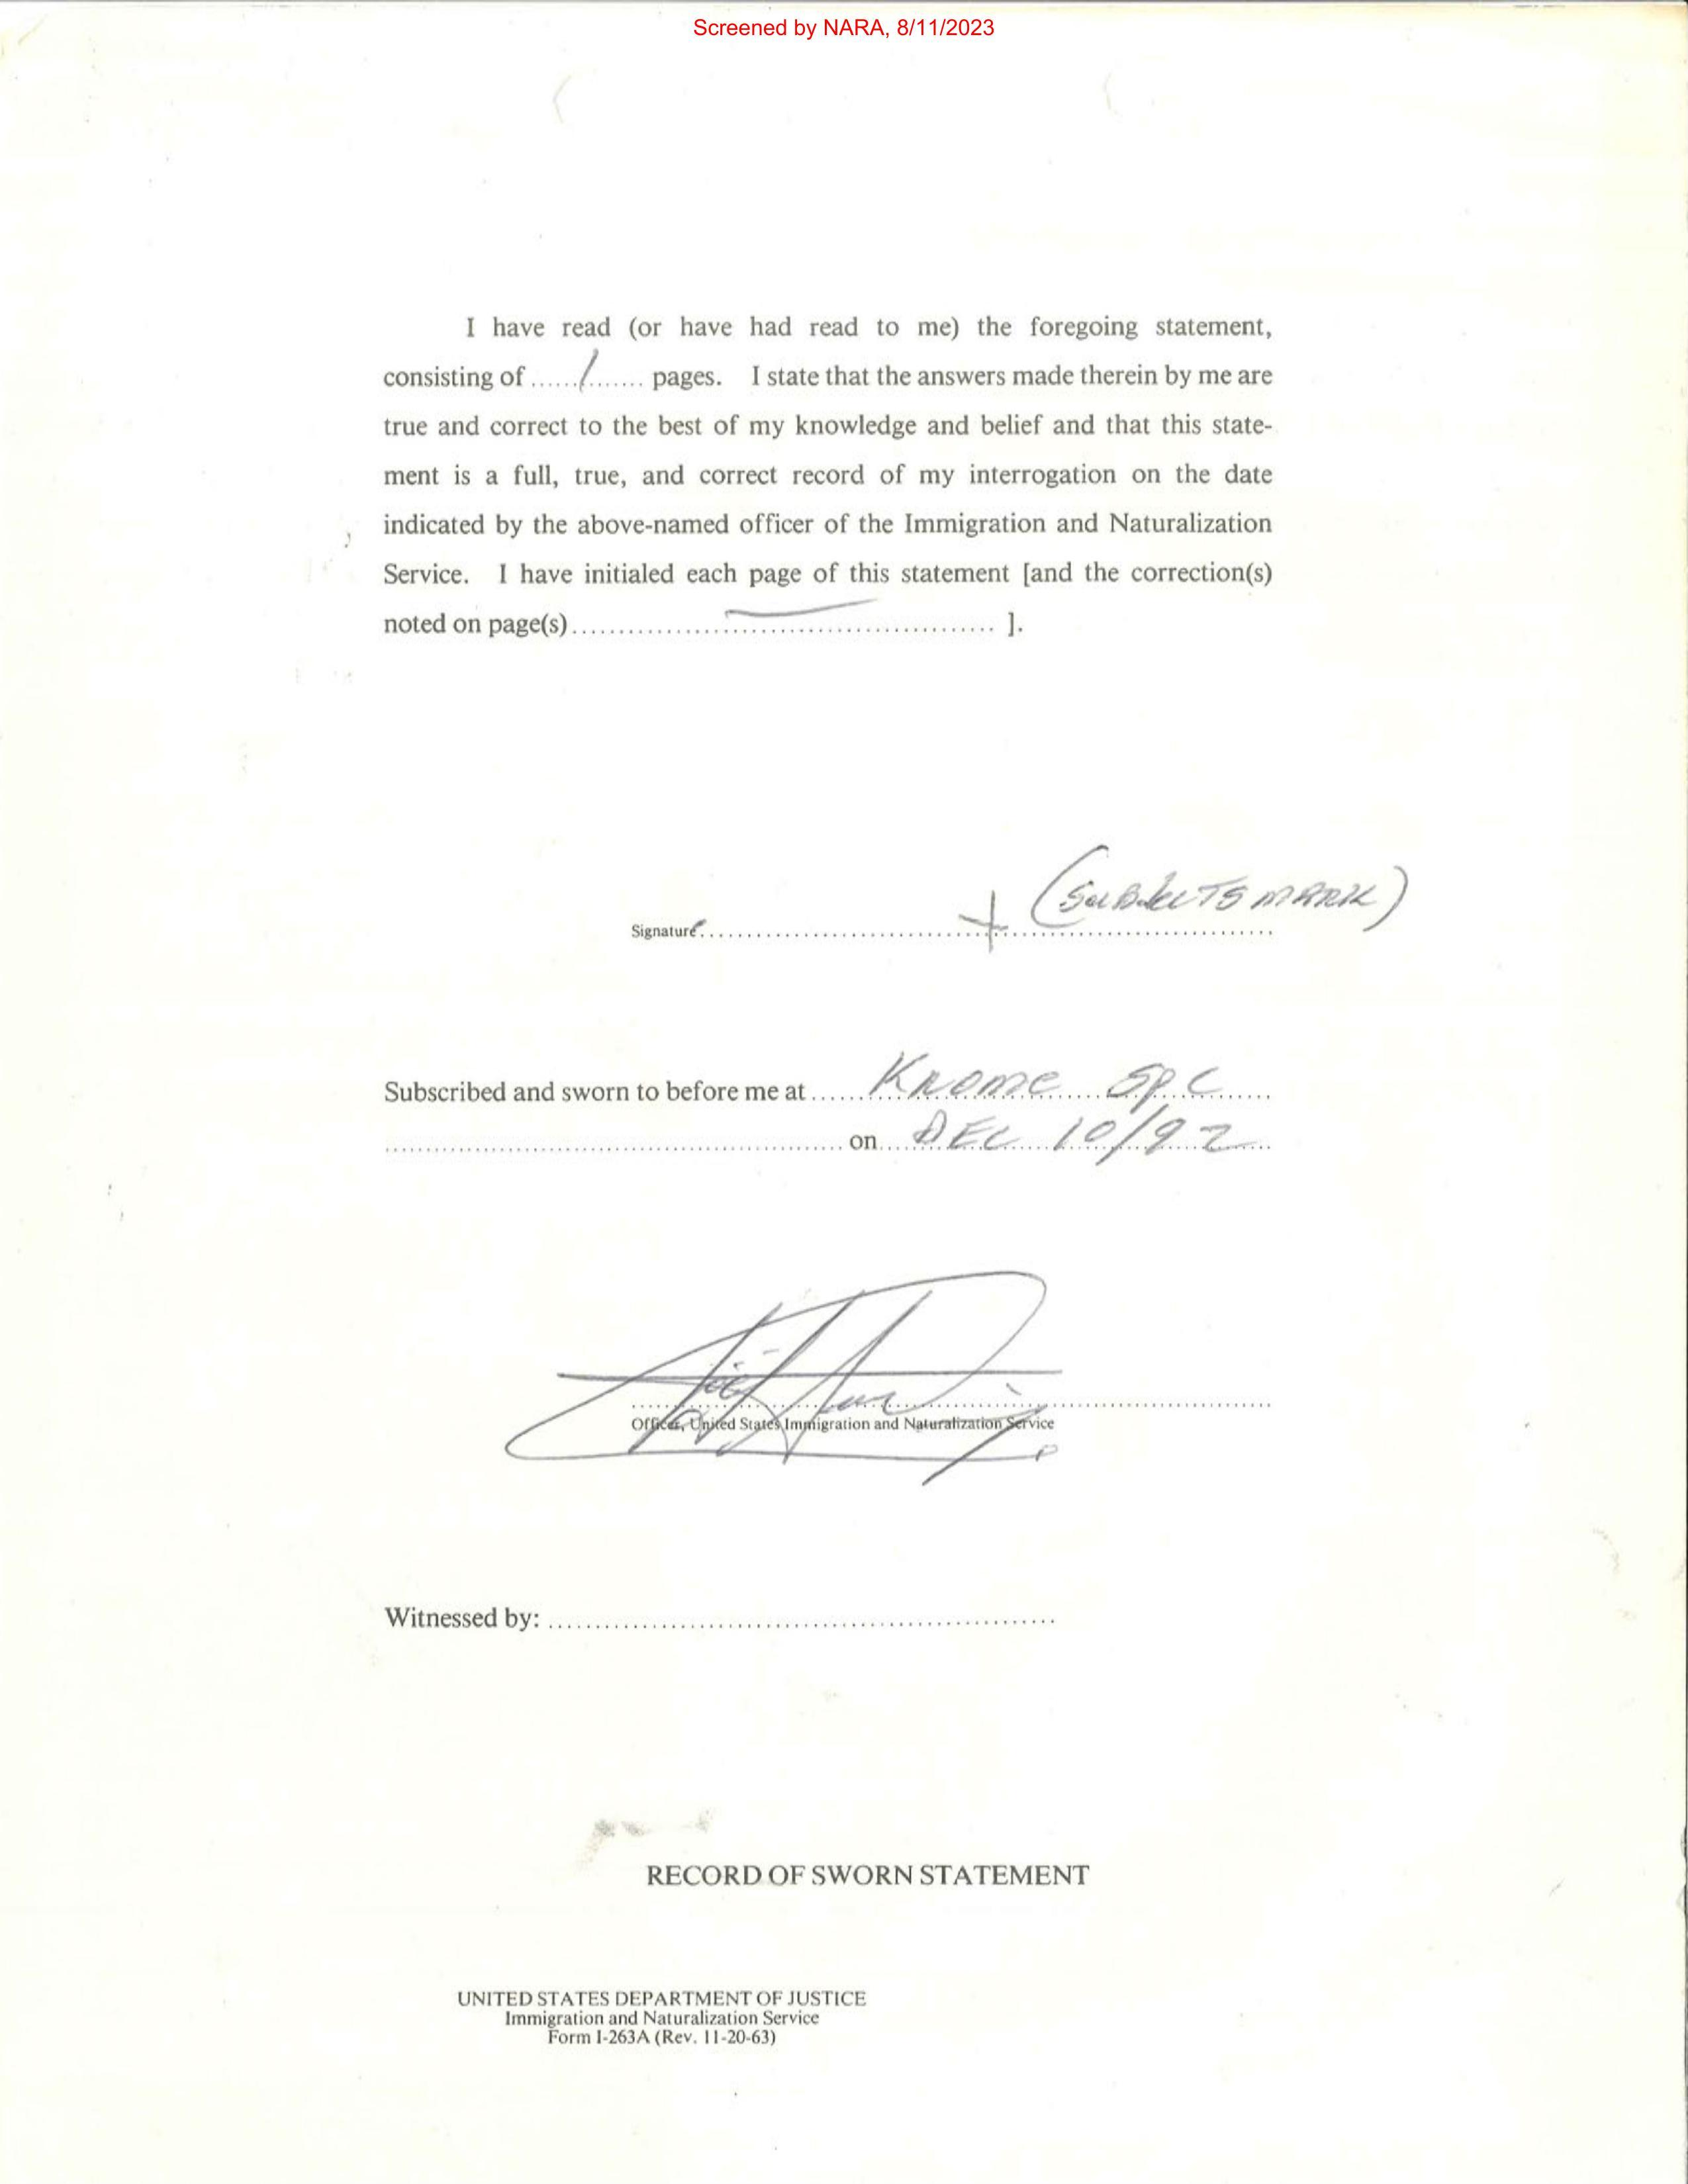 Screened by NARA, 8/11/2023
I have read (or have had read to me) the foregoing statement,
consisting of ......1....... pages. I state that the answers made therein by me are
true and correct to the best of my knowledge and belief and that this state-
ment is a full, true, and correct record of my interrogation on the date
indicated by the above-named officer of the Immigration and Naturalization
Service. I have initialed each page of this statement [and the correction(s)
noted on page(s) — ].
(SUBJECTS MARK)
Signature +
Subscribed and sworn to before me at KROME SPC
on DEC 10/92
Officer, United States Immigration and Naturalization Service
Witnessed by:
RECORD OF SWORN STATEMENT
UNITED STATES DEPARTMENT OF JUSTICE
Immigration and Naturalization Service
Form I-263A (Rev. 11-20-63)